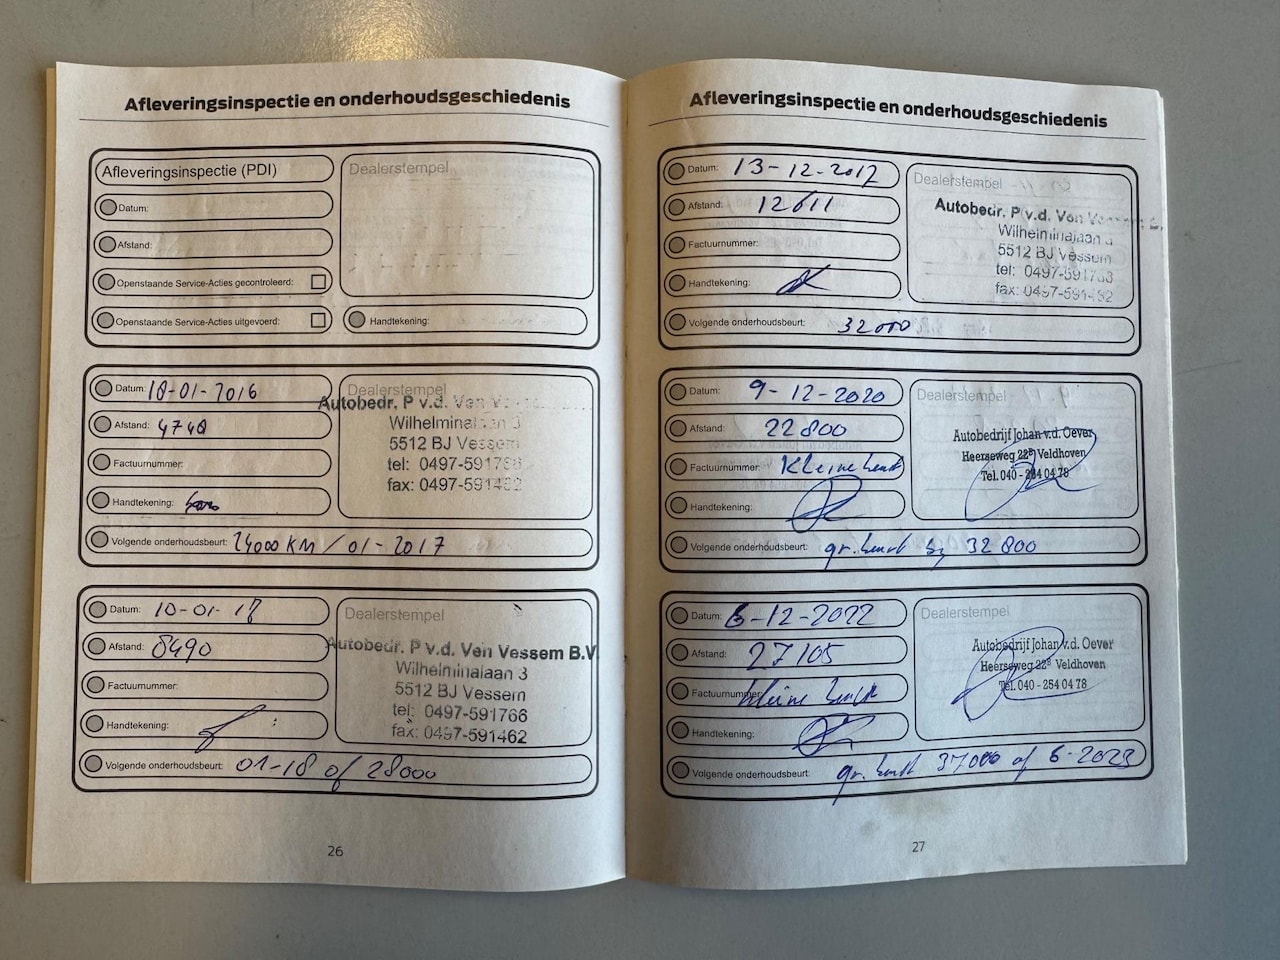 Afleveringsinspectie en onderhoudsgeschiedenis
Afleveringsinspectie (PDI)
Dealerstempel
Datum:
Afstand:
Openstaande Service-Acties gecontroleerd:
Openstaande Service-Acties uitgevoerd:
Handtekening:
Datum: 18-01-2016
Dealerstempel
Afstand: 4740
Autobedr. P v.d. Ven
Wilhelminalaan 3
5512 BJ Vessem
tel: 0497-591766
fax: 0497-591462
Factuurnummer:
Handtekening:
Volgende onderhoudsbeurt: 24000 KM / 01-2017
Datum: 10-01-17
Dealerstempel
Afstand: 8490
Autobedr. P v.d. Ven Vessem B.V.
Wilhelminalaan 3
5512 BJ Vessem
tel: 0497-591766
fax: 0497-591462
Factuurnummer:
Handtekening:
Volgende onderhoudsbeurt: 01-18 of 28000
26
Afleveringsinspectie en onderhoudsgeschiedenis
Datum: 13-12-2017
Dealerstempel
Afstand: 12611
Autobedr. P v.d. Ven
Wilhelminalaan 3
5512 BJ Vessem
tel: 0497-591766
fax: 0497-591462
Factuurnummer:
Handtekening:
Volgende onderhoudsbeurt: 32000
Datum: 9-12-2020
Dealerstempel
Afstand: 22800
Autobedrijf Johan v.d. Oever
Heerseweg 22B Veldhoven
Tel. 040 - 254 04 78
Factuurnummer: Kleine beurt
Handtekening:
Volgende onderhoudsbeurt: gr. beurt bij 32800
Datum: 6-12-2022
Dealerstempel
Afstand: 27105
Autobedrijf Johan v.d. Oever
Heerseweg 22B Veldhoven
Tel. 040 - 254 04 78
Factuurnummer: kleine beurt
Handtekening:
Volgende onderhoudsbeurt: gr. beurt 37000 of 6-2023
27